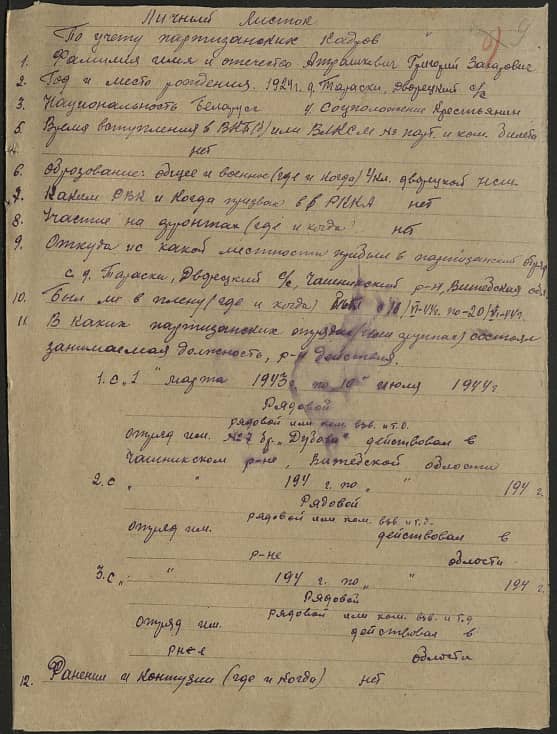 Личный Листок
По учету партизанских Кадров "
9
1. Фамилия имя и отчество Атрашкевич Григорий Захарович
2. Год и место рождения. 1924 г. д. Тараски, Дворецкий с/с
3. Национальность беларус 4. Соцположение Крестьянин
5. Время вступления в ВКП(б) или ВЛКСМ № парт. и ком. билета
нет
6. Образование: общее и военное (где и когда) 4 кл. дворецкой
7. Каким РВК и Когда призван в РККА нет
8. Участие на фронтах (где и когда) нет
9. Откуда и с какой местности прибыл в партизанский отряд
с д. Тараски, Дворецкий с/с, Чашникский р-н, Витебская обл
10. Был ли в плену (где и когда) VI-44г. по-20/VI-44г.
11. В Каких партизанских отрядах (или группах) состоял
занимаемая должность, р-н действия.
1. с "1" марта 1943 г. по "10" июля 1944 г.
Рядовой
рядовой или ком. взв. и т.д.
отряд им. №2 бр. "Дубова" действовал в
Чашникском р-не, Витебской области
2. с " " 194 г. по " " 194 г.
Рядовой
рядовой или ком. взв. и т.д.
отряд им. действовал в
р-не области
3. с " " 194 г. по " " 194 г.
Рядовой
рядовой или ком. взв. и т.д
отряд им. действовал в
р-не области
12. Ранении и Контузии (где и когда) нет